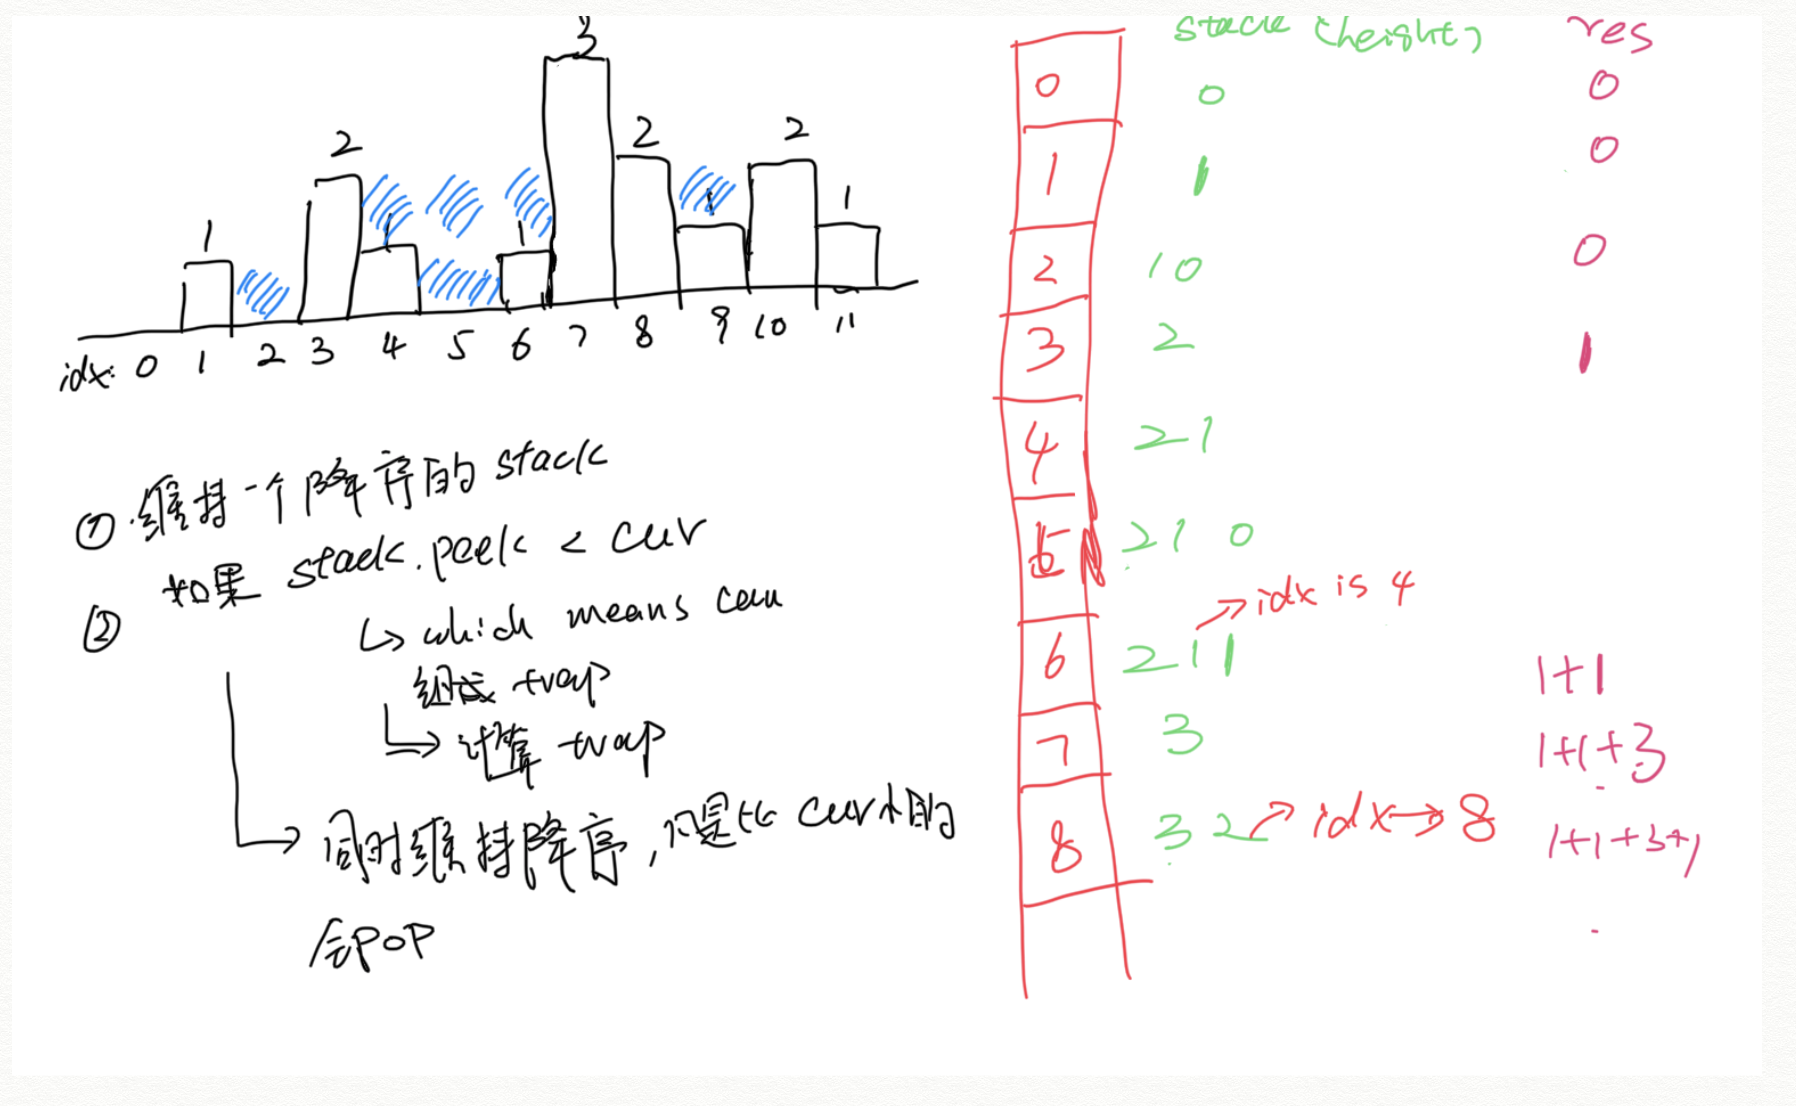 3
2
2
2
1
1
1
1
1
idx: 0 1 2 3 4 5 6 7 8 9 10 11
① 维持一个降序的 stack
② 如果 stack.peek < cur
↳ which means can
组成 trap
↳ 计算 trap
→ 同时维持降序, 只是比 cur 小的
会 POP
stack (height) res
0 0 0
1 1 0
2 1 0 0
3 2 1
4 2 1
5 2 1 0
→ idx is 4
6 2 1 1 1+1
7 3 1+1+3
8 3 2 → idx → 8 1+1+3+1